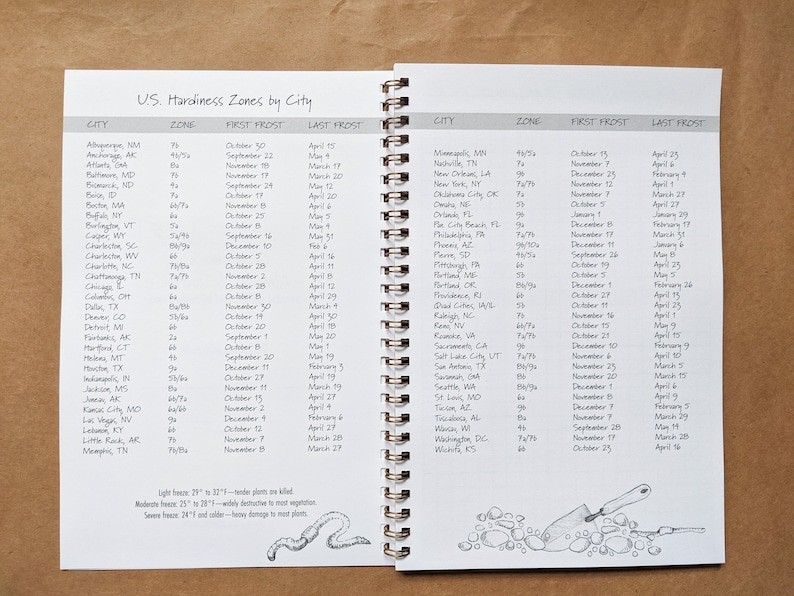 U.S. Hardiness Zones by City
CITY ZONE FIRST FROST LAST FROST
Albuquerque, NM 7b October 30 April 15
Anchorage, AK 4b/5a September 22 May 4
Atlanta, GA 8a November 18 March 17
Baltimore, MD 7b November 17 March 20
Bismarck, ND 4a September 24 May 12
Boise, ID 7a October 17 April 20
Boston, MA 6b/7a November 8 April 6
Buffalo, NY 6a October 25 May 5
Burlington, VT 5a October 8 May 4
Casper, WY 5a/4b September 16 May 31
Charleston, SC 8b/9a December 10 Feb 6
Charleston, WV 6b October 5 April 16
Charlotte, NC 7b/8a October 28 April 11
Chattanooga, TN 7a/7b November 2 April 8
Chicago, IL 6a October 28 April 12
Columbus, OH 6a October 8 April 29
Dallas, TX 8a/8b November 30 March 4
Denver, CO 5b/6a October 14 April 30
Detroit, MI 6b October 20 April 18
Fairbanks, AK 2a September 1 May 20
Hartford, CT 6b October 8 May 1
Helena, MT 4b September 20 May 19
Houston, TX 9a December 11 February 3
Indianapolis, IN 5b/6a October 27 April 19
Jackson, MS 8a November 11 March 19
Juneau, AK 6b/7a October 13 April 27
Kansas City, MO 6a/6b November 2 April 4
Las Vegas, NV 9a December 4 February 6
Lebanon, KY 6b October 12 April 27
Little Rock, AR 7b November 7 March 28
Memphis, TN 7b/8a November 8 March 27
Light freeze: 29° to 32°F—tender plants are killed.
Moderate freeze: 25° to 28°F—widely destructive to most vegetation.
Severe freeze: 24°F and colder—heavy damage to most plants.
CITY ZONE FIRST FROST LAST FROST
Minneapolis, MN 4b/5a October 13 April 23
Nashville, TN 7a November 7 April 6
New Orleans, LA 9b December 23 February 4
New York, NY 7a/7b November 12 April 1
Oklahoma City, OK 7a November 7 March 27
Omaha, NE 5b October 5 April 27
Orlando, FL 9b January 1 January 29
Pan. City Beach, FL 9a December 8 February 17
Philadelphia, PA 7a/7b November 17 March 31
Phoenix, AZ 9b/10a December 11 January 6
Pierre, SD 4b/5a September 26 May 8
Pittsburgh, PA 6b October 19 April 23
Portland, ME 5b October 5 May 5
Portland, OR 8b/9a December 1 February 26
Providence, RI 6b October 27 April 13
Quad Cities, IA/IL 5b October 11 April 23
Raleigh, NC 7b November 16 April 1
Reno, NV 6b/7a October 15 May 9
Roanoke, VA 7a/7b October 27 April 15
Sacramento, CA 9b December 10 February 9
Salt Lake City, UT 7a/7b November 6 April 10
San Antonio, TX 8b/9a November 23 March 5
Savannah, GA 8b November 20 March 15
Seattle, WA 8b/9a December 1 April 6
St. Lovis, MO 6a November 8 April 9
Tucson, AZ. 9b December 7 February 5
Tuscaloosa, AL 8a November 7 March 29
Wausau, WI 4b September 28 May 14
Washington, D.C. 7a/7b November 17 March 28
Wichita, KS 6b October 23 April 16